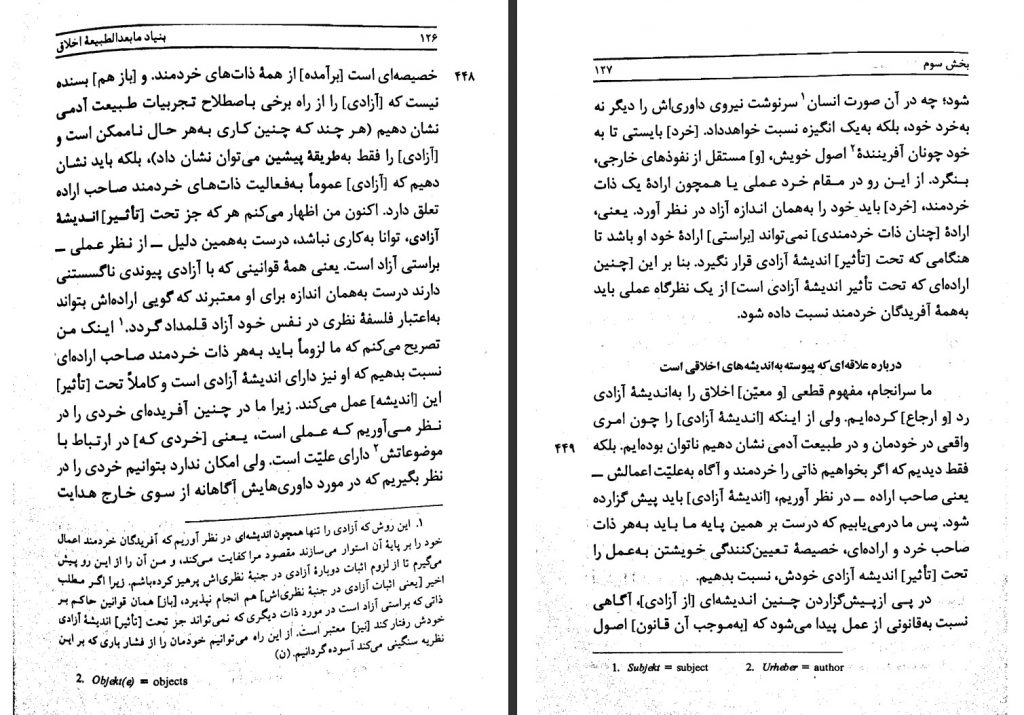 ۱۲۶
بنیاد مابعدالطبیعهٔ اخلاق
۴۴۸
خصیصه‌ای است [برآمده] از همهٔ ذات‌های خردمند. و [باز هم] بسنده
نیست که [آزادی] را از راه برخی باصطلاح تجربیات طبیعت آدمی
نشان دهیم (هر چند که چنین کاری به‌هر حال ناممکن است و
[آزادی] را فقط به‌طریقهٔ پیشین می‌توان نشان داد)، بلکه باید نشان
دهیم که [آزادی] عموماً به‌فعالیت ذات‌های خردمند صاحب اراده
تعلق دارد. اکنون من اظهار می‌کنم هر که جز تحت [تأثیر] اندیشهٔ
آزادی، توانا به‌کاری نباشد، درست به‌همین دلیل ــ از نظر عملی ــ
براستی آزاد است. یعنی همهٔ قوانینی که با آزادی پیوندی ناگسستنی
دارند درست به‌همان اندازه برای او معتبرند که گویی اراده‌اش بتواند
به‌اعتبار فلسفهٔ نظری در نفس خود آزاد قلمداد گردد.۱ اینک من
تصریح می‌کنم که ما لزوماً باید به‌هر ذات خردمند صاحب اراده‌ای
نسبت بدهیم که او نیز دارای اندیشهٔ آزادی است و کاملاً تحت [تأثیر]
این [اندیشه] عمل می‌کند. زیرا ما در چنین آفریده‌ای خردی را در
نظر می‌آوریم که عملی است، یعنی [خردی که] در ارتباط با
موضوعاتش۲ دارای علیّت است. ولی امکان ندارد بتوانیم خردی را در
نظر بگیریم که در مورد داوری‌هایش آگاهانه از سوی خارج هدایت
۱. این روش که آزادی را تنها همچون اندیشه‌ای در نظر آوریم که آفریدگان خردمند اعمال
خود را بر پایهٔ آن استوار می‌سازند مقصود مرا کفایت می‌کند، و من آن را از این رو پیش
می‌گیرم تا از لزوم اثبات دوبارهٔ آزادی در جنبهٔ نظری‌اش پرهیز کرده‌باشم. زیرا اگر مطلب
اخیر [یعنی اثبات آزادی در جنبهٔ نظری‌اش] هم انجام نپذیرد، [باز] همان قوانین حاکم بر
ذاتی که براستی آزاد است در مورد ذات دیگری که نمی‌تواند جز تحت [تأثیر] اندیشهٔ آزادی
خودش رفتار کند [نیز] معتبر است. از این راه می‌توانیم خودمان را از فشار باری که بر این
نظریه سنگینی می‌کند آسوده گردانیم. (ن)
2. Objekt(e) = objects
بخش سوم
۱۲۷
شود؛ چه در آن صورت انسان۱ سرنوشت نیروی داوری‌اش را دیگر نه
به‌خرد خود، بلکه به‌یک انگیزه نسبت خواهدداد. [خرد] بایستی تا به
خود چونان آفرینندهٔ۲ اصول خویش، [و] مستقل از نفوذهای خارجی،
بنگرد. از این رو در مقام خرد عملی یا همچون ارادهٔ یک ذات
خردمند، [خرد] باید خود را به‌همان اندازه آزاد در نظر آورد. یعنی،
ارادهٔ [چنان ذات خردمندی] نمی‌تواند [براستی] ارادهٔ خود او باشد تا
هنگامی که تحت [تأثیر] اندیشهٔ آزادی قرار نگیرد. بنا بر این [چنین
اراده‌ای که تحت تأثیر اندیشهٔ آزادی است] از یک نظرگاه عملی باید
به‌همهٔ آفریدگان خردمند نسبت داده شود.
درباره علاقه‌ای که پیوسته به‌اندیشه‌های اخلاقی است
ما سرانجام، مفهوم قطعی [و معیّن] اخلاق را به‌اندیشهٔ آزادی
رد [و ارجاع] کرده‌ایم. ولی از اینکه [اندیشهٔ آزادی] را چون امری
واقعی در خودمان و در طبیعت آدمی نشان دهیم ناتوان بوده‌ایم. بلکه
۴۴۹
فقط دیدیم که اگر بخواهیم ذاتی را خردمند و آگاه به‌علیّت اعمالش ــ
یعنی صاحب اراده ــ در نظر آوریم، [اندیشهٔ آزادی] باید پیش گزارده
شود. پس ما درمی‌یابیم که درست بر همین پایه ما باید به‌هر ذات
صاحب خرد و اراده‌ای، خصیصهٔ تعیین‌کنندگی خویشتن به‌عمل را
تحت [تأثیر] اندیشه آزادی خودش، نسبت بدهیم.
در پی ازپیش‌گزاردن چنین اندیشه‌ای [از آزادی]، آگاهی
نسبت به‌قانونی از عمل پیدا می‌شود که [به‌موجب آن قانون] اصول
1. Subjekt = subject 2. Urheber = author